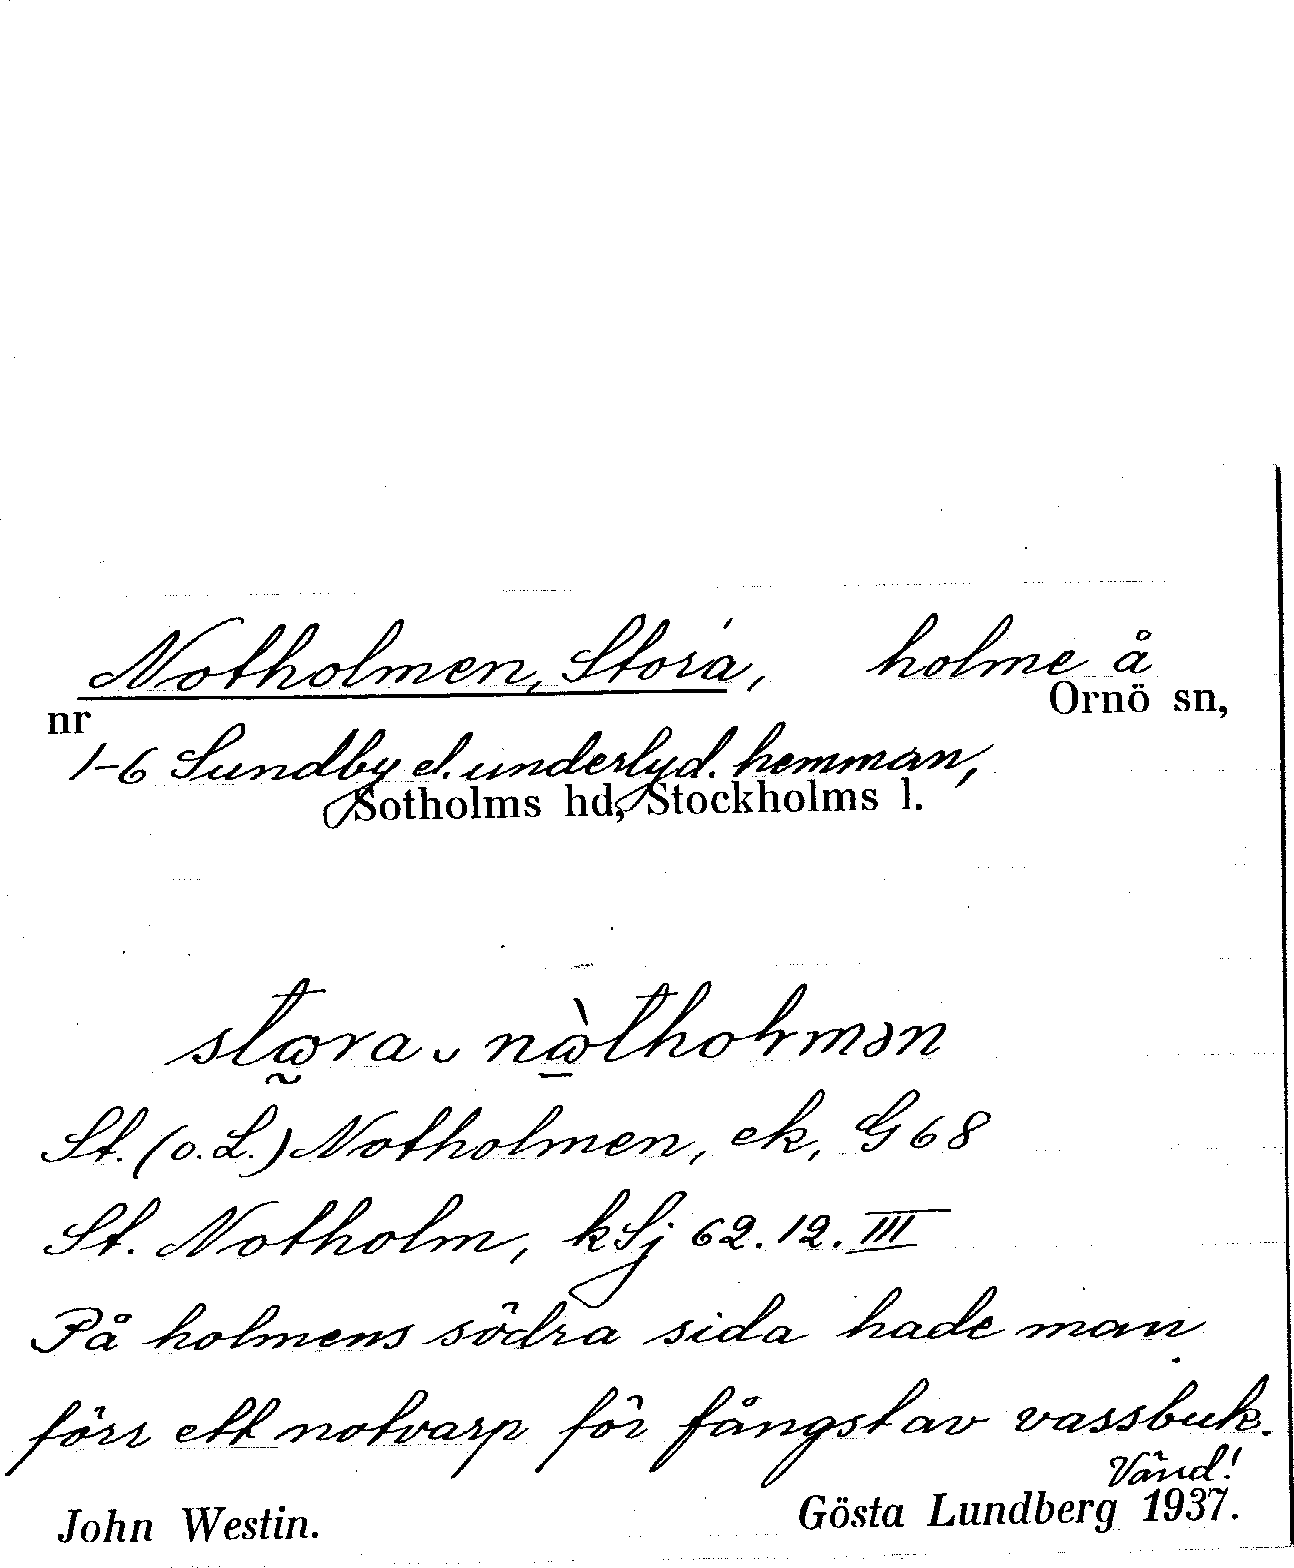 Notholmen, Stora, holme å
nr Ornö sn,
1-6 Sundby el. underlyd. hemman,
Sotholms hd, Stockholms l.
St. (o. L.) Notholmen, ek, G 68
St. Notholm, kSj 62. 12. III
På holmens södra sida hade man
förr ett notvarp för fångst av vassbuk.
Vänd!
John Westin. Gösta Lundberg 1937.